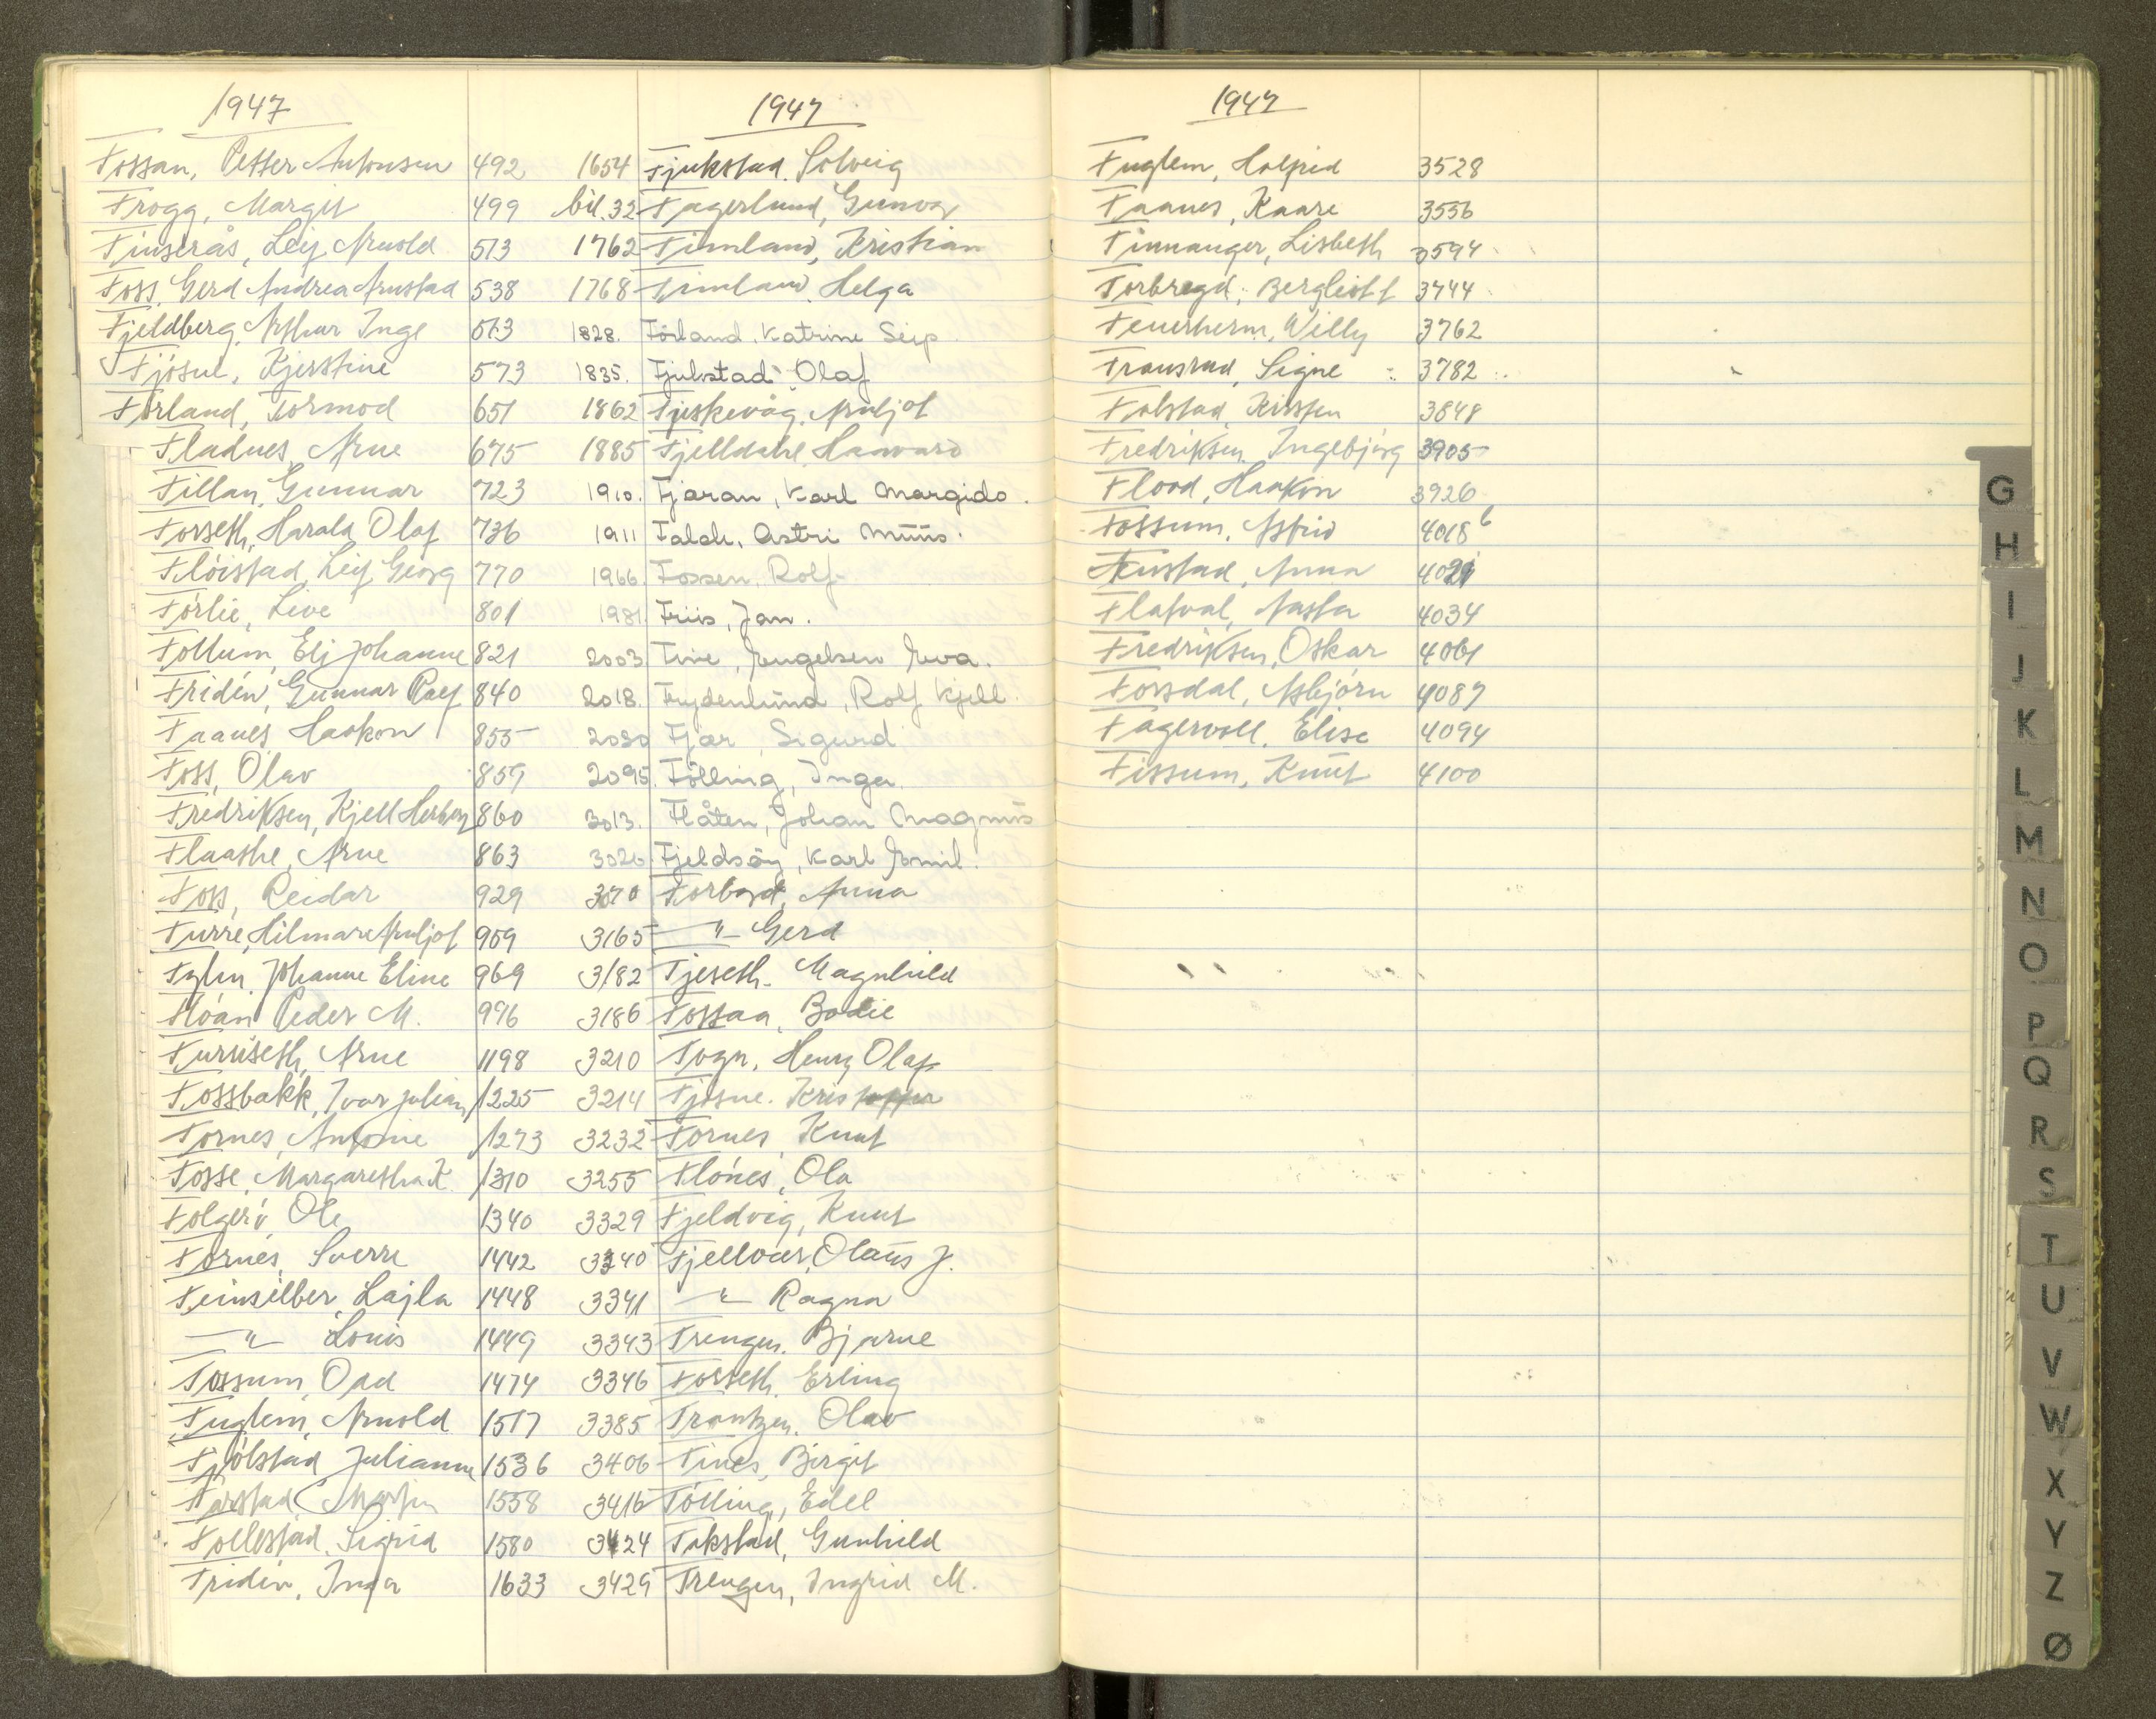 1947
Fossan, Petter Antonsen 492
Frogg, Margit 499
Finserås, Leif Arnold 513
Foss, Gerd Andrea Arnstad 538
Fjeldberg, Arthur Inge 563
Fjösne, Kjerstine 573
Förland, Tormod 651
Fladnes, Arne 675
Fillan, Gunnar 723
Forseth, Harald Olaf 736
Flöistad, Leif Georg 770
Förlie, Live 801
Follum, Eli Johanne 821
Fridén, Gunnar Ralf 840
Faanes, Haakon 855
Foss, Olav 859
Fredriksen, Kjell 860
Flaathe, Arne 863
Foss, Reidar 929
Furre, Hilmar Arnljot 959
Johanne Eline 969
Flóan Peder M. 996
Furuseth, Arne 1198
Fossbakk, Ivar Julian 1225
Fornes, Antonie 1273
Fosse, Margaretha K. 1310
Folgerö, Ole 1340
Fornes, Sverre 1442
Feinsilber, Lajla 1448
—"— Louis 1449
Fossum, Odd 1474
Fuglem, Arnold 1517
Fjölstad Julianne 1536
1558
Follestad, Sigrid 1580
Fridén, Inga 1633
1947
1654 Fjukstad, Solveig
bil. 32 Fagerlund, Gunvor
1762 Fimland, Kristian
1768 Fimland, Helga
1828. Förland, Katrine Seip
1835. Fjukstad, Olaf
1862 Fjeskevåg, Arnljot
1885 Fjelldahl, Haavard
1910. Fjæran, Karl Margido.
1911 Falch, Astri Müus.
1966. Fossen, Rolf
1981 Friis, Jan.
2003 Fine, Engelsen Eva.
2018. Frydenlund, Rolf Kjell.
2080 Fjær, Sigurd
2095. Fölling, Inga.
3013. Flåten, Johan Magnus
3020. Fjeldsöy, Karl Emil.
3070 Forbord, Anna
3165 —"— Gerd
3182 Fjeseth, Magnhild
3186 Fossaa, Bodil
3210 Fogn, Henry Olaf
3214 Fjösne, Kristoffer
3232 Fornes, Knut
3255 Flönes, Ola
3329 Fjeldvig, Knut
3340 Fjellvær, Olaus J.
3341 —"— Ragna
3343 Frengen, Bjarne
3346 Forseth, Erling
3385 Frantzen, Olav
3406 Fines, Birgit
3416 Fölling, Edel
3424 Fikstad, Gunhild
3429 Frengen, Ingrid M.
1947
Fuglem, Halfrid 3528
Faanes, Kaare 3556
Finnanger, Lisbeth 3594
Forbregd, Bergliott 3744
Feuerherm, Willy 3762
Framstad, Signe 3782
Folstad, Kirsten 3848
Fredriksen, Ingebjörg 3905
Flood, Haakon 3926
Fossum, Astrid 4018 b
Anna 4021
Flatval, Nasta 4034
Fredriksen, Oskar 4061
Forsdal, Asbjörn 4087
Fagervoll, Elise 4094
Fissum, Knut 4100
G
H
I
J
K
L
M
N
O
P
Q
R
S
T
U
V
W
X
Y
Z
Ø